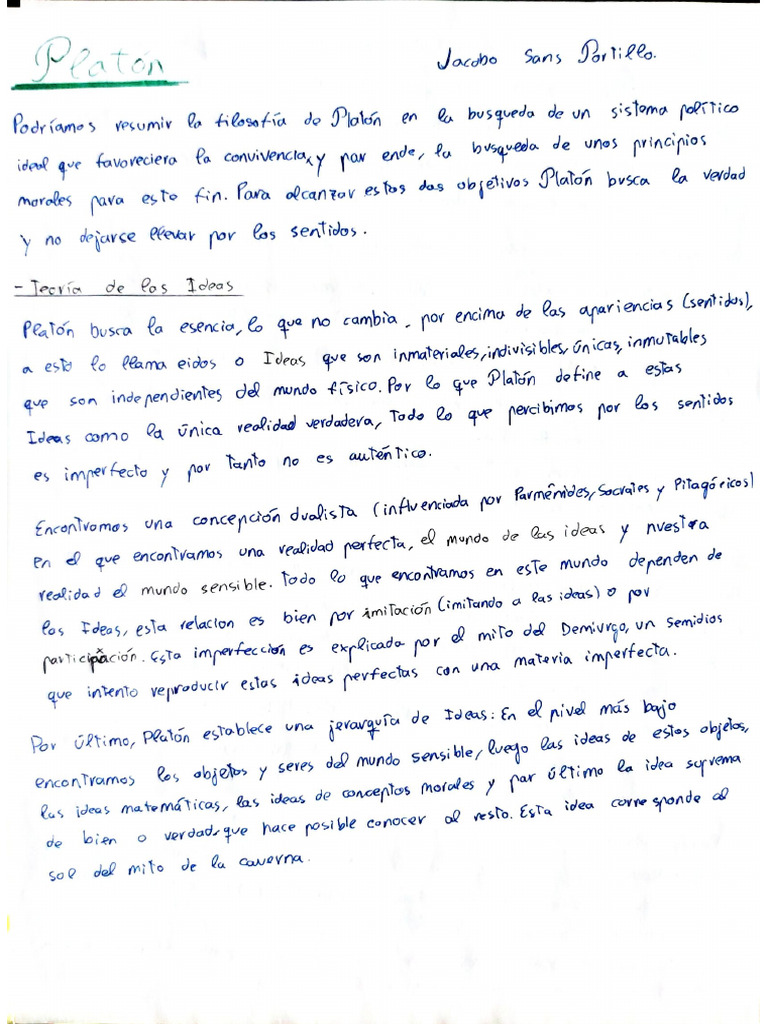 Platón
Jacobo Sans Portillo.
Podríamos resumir la filosofía de Platón en la busqueda de un sistema político
ideal que favoreciera la convivencia, y por ende, la busqueda de unos principios
morales para este fin. Para alcanzar estos dos objetivos Platón busca la verdad
y no dejarse llevar por los sentidos.
- Teoría de las Ideas
Platón busca la esencia, lo que no cambia, por encima de las apariencias (sentidos),
a esto lo llama eidos o Ideas que son inmateriales, indivisibles, únicas, inmutables
que son independientes del mundo físico. Por lo que Platón define a estas
Ideas como la única realidad verdadera, todo lo que percibimos por los sentidos
es imperfecto y por tanto no es auténtico.
Encontramos una concepción dualista (influenciada por Parménides, Socrates y Pitagóricos)
en el que encontramos una realidad perfecta, el mundo de las ideas y nuestra
realidad el mundo sensible. Todo lo que encontramos en este mundo dependen de
las Ideas, esta relacion es bien por imitación (imitando a las ideas) o por
participación. Esta imperfección es explicada por el mito del Demiurgo, un semidios
que intento reproducir estas ideas perfectas con una materia imperfecta.
Por último, Platón establece una jerarquía de Ideas: En el nivel más bajo
encontramos los objetos y seres del mundo sensible, luego las ideas de estos objetos,
las ideas matemáticas, las ideas de conceptos morales y por último la idea suprema
de bien o verdad, que hace posible conocer al resto. Esta idea corresponde al
sol del mito de la caverna.